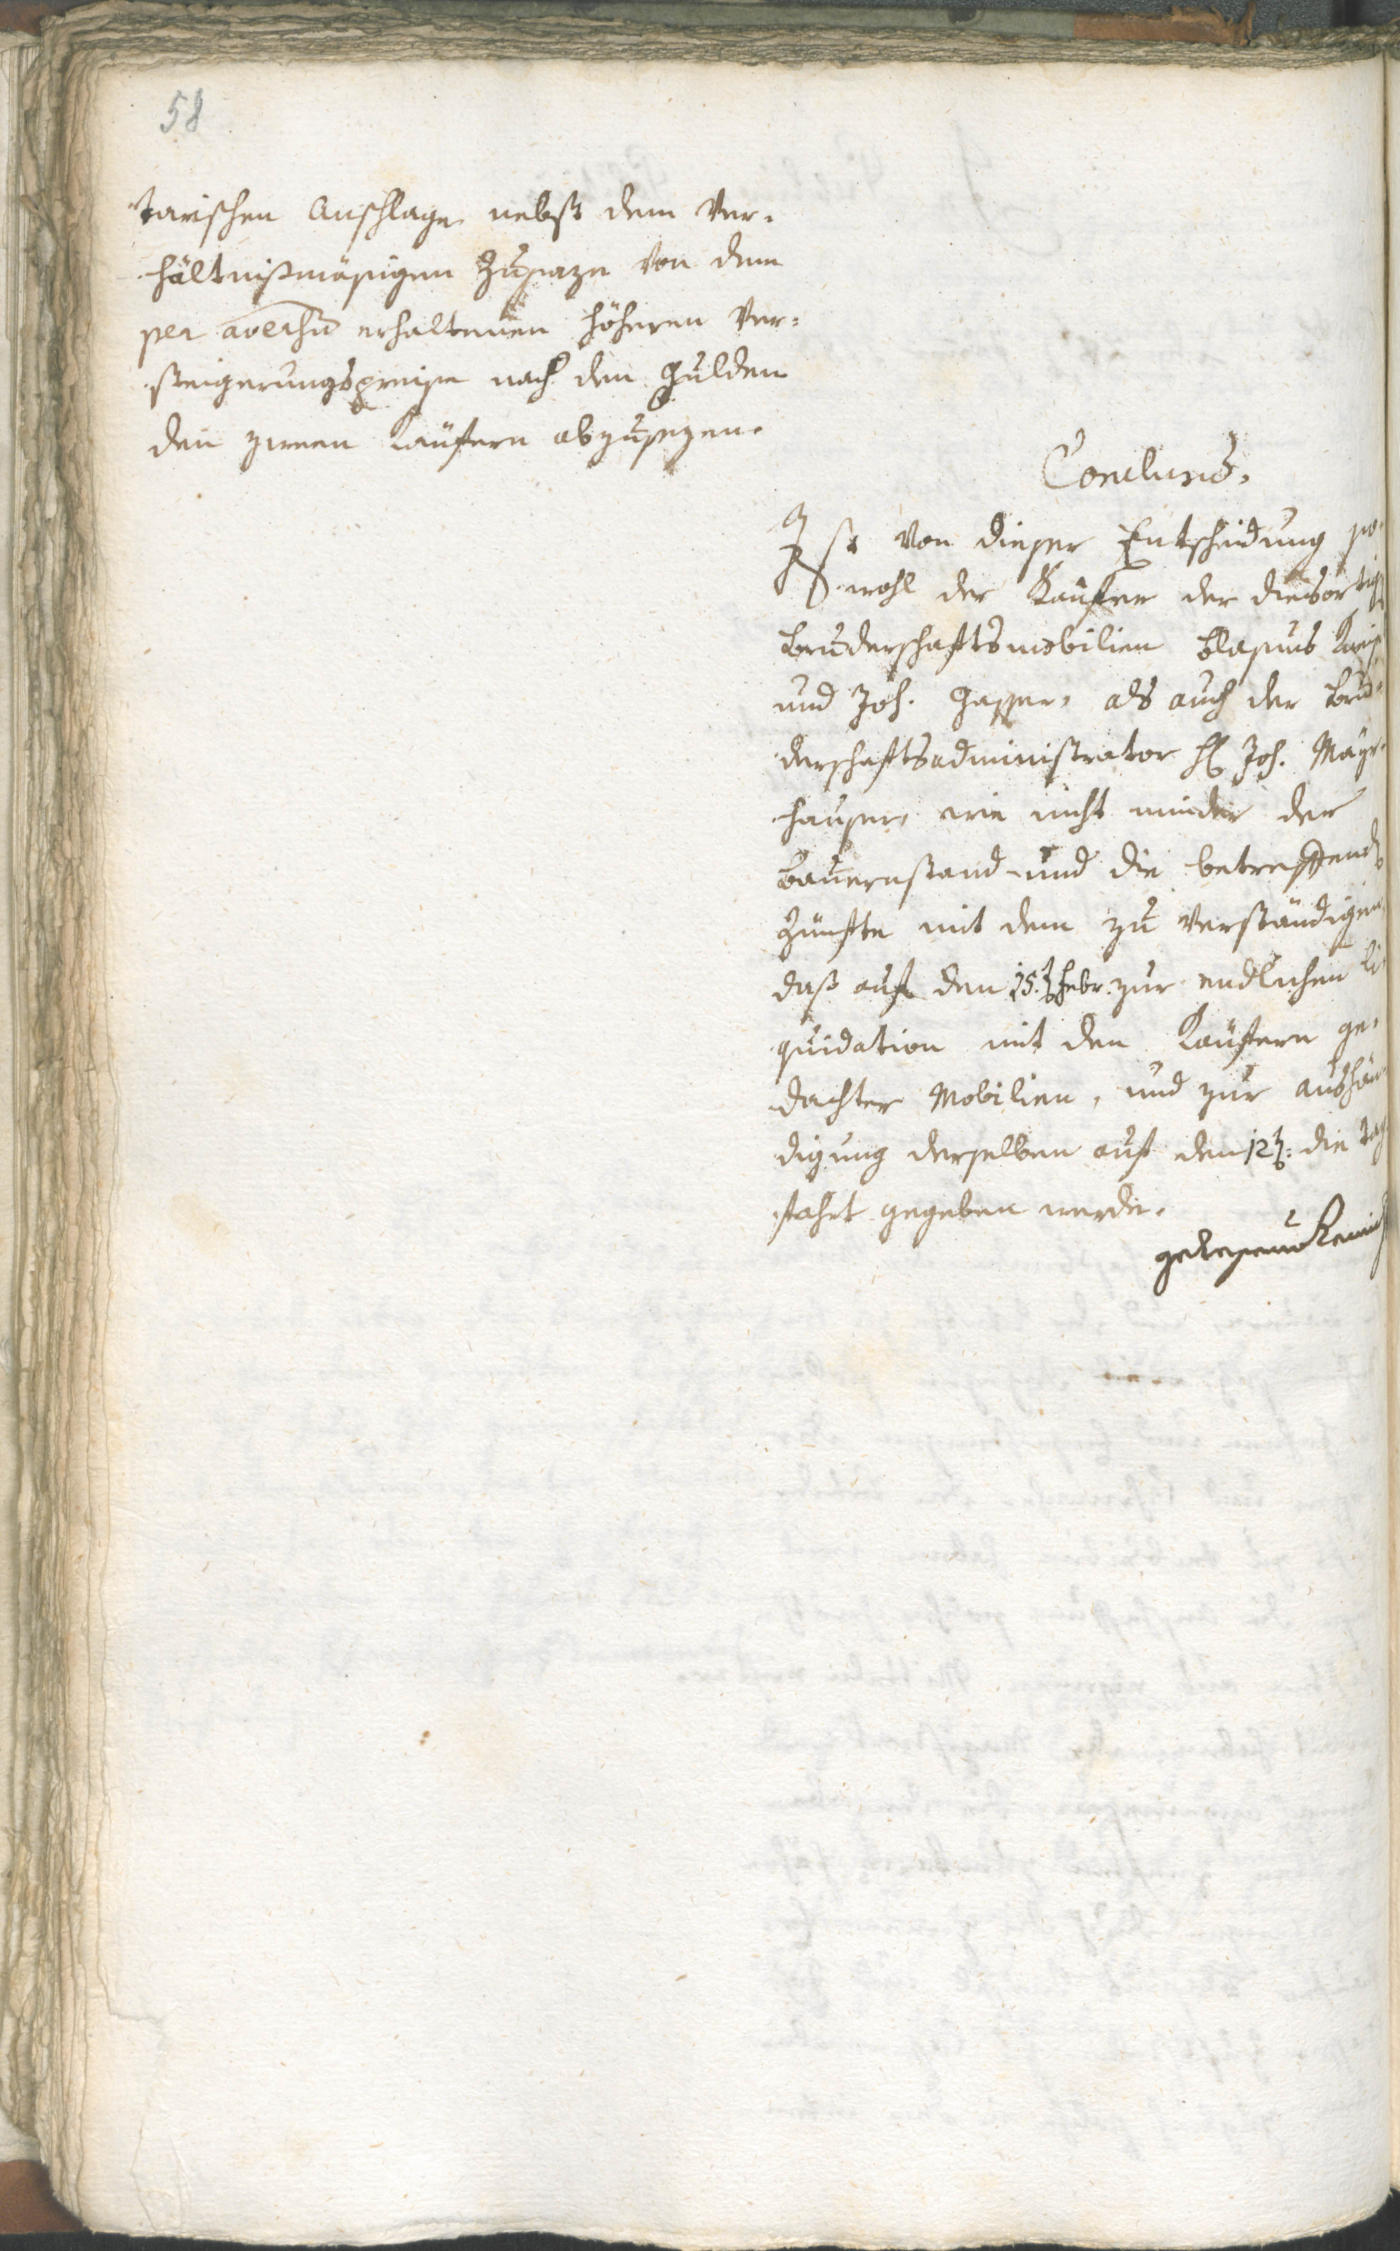 58
tarischen Anschlage nebst dem Ver¬
hältnißmäsigen Zusaze von dem
per aversũ erhaltenen höheren Ver¬
steigerungspreise nach dem Gulden
den zween Käufern abzusezen.
Conclusũ.
Ist von dieser Entscheidung so¬
wohl der Käufer der diesortig
Bruderschaftsmobilien Blasius
und Joh. Gasser, als auch der Bru¬
derschaftsadministrator H Joh. Mayr¬
hauser, wie nicht minder der
Bauernstand und die betreffend
Zünfte mit dem zu verständigen
daß auf den 15. Febr. zur endlichen li¬
quidation mit den Käufern ge¬
dachter Mobilien, und zur aushän¬
digung derselben auf den 12 die Tag
fahrt gegeben werde.